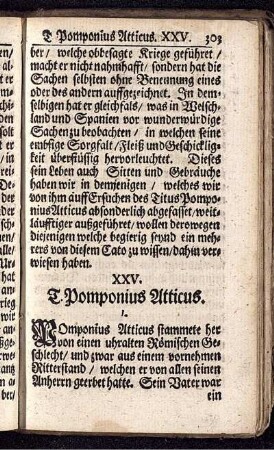 T Pomponius Atticus. XXV. 303
ber / welche obbesagte Kriege geführet /
macht er nicht nahmhafft / sondern hat die
Sachen selbsten ohne Benennung eines
oder des andern auffgezeichnet. In dem-
selbigen hat er gleichfals / was in Welsch-
land und Spanien vor wunderwürdige
Sachen zu beobachten / in welchen seine
embsige Sorgfalt / Fleiß und Geschicklig-
keit überflüssig hervorleuchtet. Dieses
sein Leben auch Sitten und Gebräuche
haben wir in demjenigen / welches wir
von ihm auff Ersuchen des Titus Pompo-
nius Atticus absonderlich abgefasset / weit-
läufftiger außgeführet / wollen derowegen
diejenigen welche begierig seynd ein meh-
rers von diesem Cato zu wissen / dahin ver-
wiesen haben.
XXV.
T. Pomponius Atticus.
1.
Pomponius Atticus stammete her
von einen uhralten Römischen Ge-
schlecht / und zwar aus einem vornehmen
Ritterstand / welchen er von allen seinen
Anherrn geerbet hatte. Sein Vater war
ein